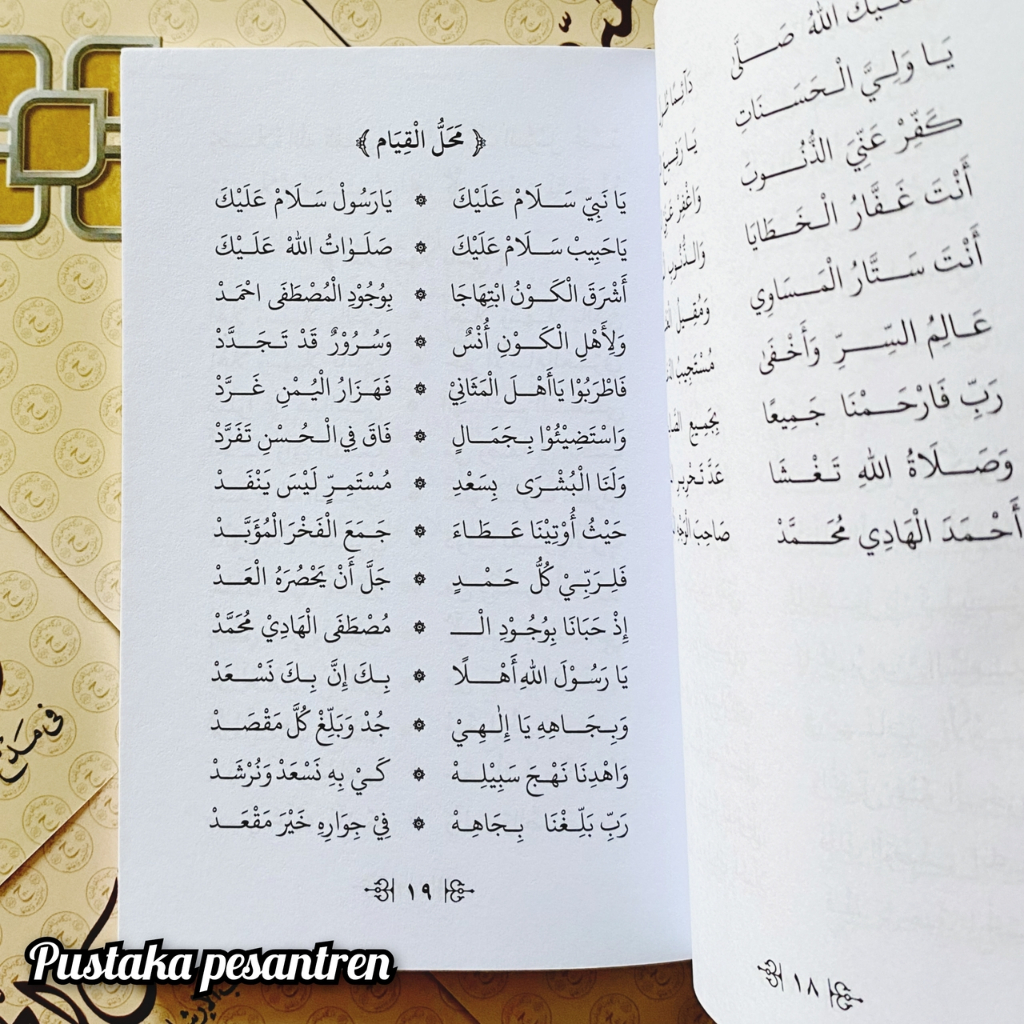 عَلَيْكَ اللهُ صَلَّى
يَا وَلِيَّ الْحَسَنَاتِ
كَفِّرْ عَنِّيَ الذُّنُوبَ
أَنْتَ غَفَّارُ الْخَطَايَا
أَنْتَ سَتَّارُ الْمَسَاوِي
عَالِمُ السِّرِّ وَأَخْفَى
رَبِّ فَارْحَمْنَا جَمِيعًا
وَصَلَاةُ اللهِ تَغْشَا
أَحْمَدَ الْهَادِي مُحَمَّدْ
١٨
مَحَلُّ الْقِيَامِ
يَا نَبِيّ سَلَامْ عَلَيْكَ ۞ يَارَسُولْ سَلَامْ عَلَيْكَ
يَاحَبِيبْ سَلَامْ عَلَيْكَ ۞ صَلَوٰاتُ اللهْ عَلَيْكَ
أَشْرَقَ الْكَوْنُ ابْتِهَاجَا ۞ بِوُجُوْدِ الْمُصْطَفَى احْمَدْ
وَلِأَهْلِ الْكَوْنِ أُنْسٌ ۞ وَسُرُوْرٌ قَدْ تَجَدَّدْ
فَاطْرَبُوْا يَاأَهْلَ الْمَثَانِيْ ۞ فَهَزَارُ الْيُمْنِ غَرَّدْ
وَاسْتَضِيْئُوْا بِجَمَالٍ ۞ فَاقَ فِي الْحُسْنِ تَفَرَّدْ
وَلَنَا الْبُشْرَى بِسَعْدٍ ۞ مُسْتَمِرٍّ لَيْسَ يَنْفَدْ
حَيْثُ أُوْتِيْنَا عَطَاءَ ۞ جَمَعَ الْفَخْرَ الْمُؤَبَّدْ
فَلِرَبِّيْ كُلُّ حَمْدٍ ۞ جَلَّ أَنْ يَحْصُرَهُ الْعَدْ
إِذْ حَبَانَا بِوُجُوْدِ الْـ ۞ مُصْطَفَى الْهَادِيْ مُحَمَّدْ
يَا رَسُوْلَ اللهِ أَهْلًا ۞ بِكَ إِنَّ بِكَ نَسْعَدْ
وَبِجَاهِهِ يَا إِلٰهِيْ ۞ جُدْ وَبَلِّغْ كُلَّ مَقْصَدْ
وَاهْدِنَا نَهْجَ سَبِيْلِهْ ۞ كَيْ بِهِ نَسْعَدْ وَنُرْشَدْ
رَبِّ بَلِّغْنَا بِجَاهِهْ ۞ فِيْ جِوَارِهِ خَيْرَ مَقْعَدْ
١٩
Pustaka pesantren